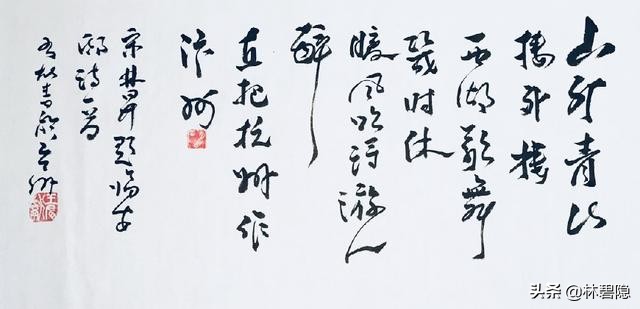 山外青山
楼外楼
西湖歌舞
几时休
暖风吹得游人
醉
直把杭州作
汴州
宋林昇题临安
邸诗一首
头条 @林碧隐